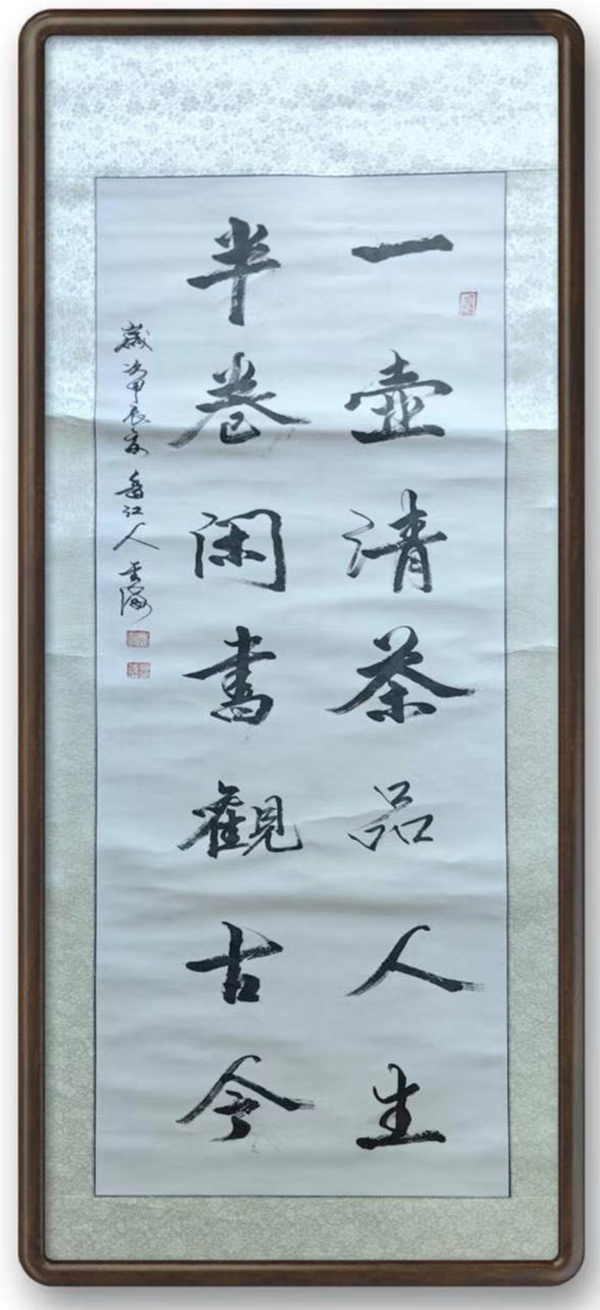 一壶清茶品人生
半卷闲書觀古今
歲次甲辰夏 香江人